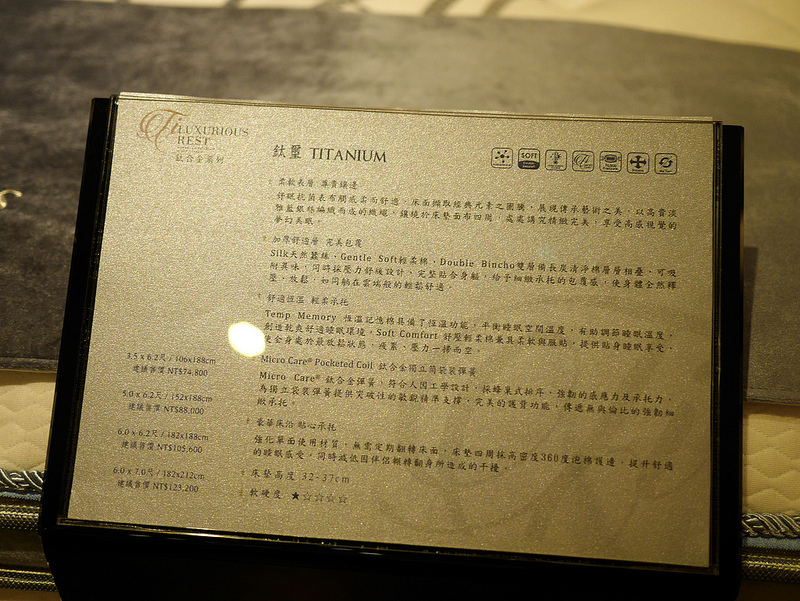 Ti LUXURIOUS
REST
鈦合金系列
鈦璽 TITANIUM
SOFT
柔軟表層 尊貴鑲邊
舒眠抗菌表布觸感柔而舒適,床面擷取經典元素之圖騰,展現傳承藝術之美,以高貴淡
雅藍銀絲編織而成的織繩,鑲繞於床墊面布四周,處處講究精緻完美,享受高感視覺的
夢幻美眠。
加厚舒適層 完美包覆
Silk天然蠶絲、Gentle Soft輕柔棉、Double Bincho雙層備長炭清淨棉層層相疊、可吸
附異味,同時採壓力舒緩設計,完整貼合身軀,給予細緻承托的包覆感,使身體全然釋
壓、放鬆,如同躺在雲端般的輕鬆舒適。
舒適恆溫 輕柔承托
Temp Memory 恆溫記憶棉具備了恆溫功能,平衡睡眠空間溫度,有助調節睡眠溫度,
創造乾爽舒適睡眠環境,Soft Comfort 舒壓輕柔棉兼具柔軟與服貼,提供貼身睡眠享受,
使全身處於最放鬆狀態,疲累、壓力一掃而空。
Micro Care® Pocketed Coil 鈦合金獨立筒袋裝彈簧
Micro Care® 鈦合金彈簧,符合人因工學設計,採蜂巢式排序,強韌的感應力及承托力,
為獨立袋裝彈簧提供突破性的敏銳精準支撐,完美的護背功能,傳遞無與倫比的強韌細
緻承托。
豪華床沿 貼心承托
強化單面使用材質,無需定期翻轉床面,床墊四周採高密度360度泡棉護邊,提升舒適
的睡眠感受,同時減低因伴侶輾轉翻身所造成的干擾。
床墊高度 32-37cm
軟硬度 ★☆☆☆☆
3.5 x 6.2尺 / 106x188cm
建議售價 NT$74,800
5.0 x 6.2尺 / 152x188cm
建議售價 NT$88,000
6.0 x 6.2尺 / 182x188cm
建議售價 NT$105,600
6.0 x 7.0尺 / 182x212cm
建議售價 NT$123,200